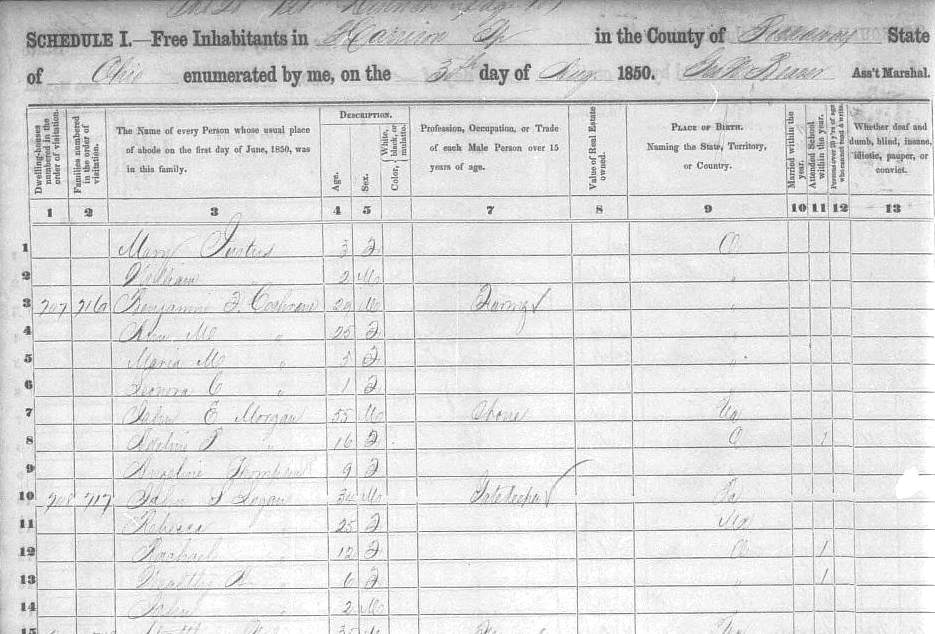 SCHEDULE I.—Free Inhabitants in Harrison Tp in the County of Pickaway State
of Ohio enumerated by me, on the 30th day of Aug 1850. Ass't Marshal.
Dwelling-houses numbered in the order of visitation.
Families numbered in the order of visitation.
The Name of every Person whose usual place of abode on the first day of June, 1850, was in this family.
DESCRIPTION.
Age.
Sex.
Color, White, black, or mulatto.
Profession, Occupation, or Trade of each Male Person over 15 years of age.
Value of Real Estate owned.
PLACE OF BIRTH. Naming the State, Territory, or Country.
Married within the year.
Attended School within the year.
Persons over 20 y'rs of age who cannot read & write.
Whether deaf and dumb, blind, insane, idiotic, pauper, or convict.
1 2 3 4 5 6 7 8 9 10 11 12 13
1 Mary Justus 3 F O
2 William 2 M "
3 707 716 Benjamin F. Cochran 29 M Farmer "
4 M " 25 F "
5 Maria M " F "
6 Leonora C " 1 F "
7 John E Morgan 55 M None Va
8 " 16 F O 1
9 Angeline Thompson 9 F
10 708 717 John Logan 34 M Pa
11 Rebecca " 25 F
12 Rachael " 12 F O 1
13 " 6 F 1
14 John " 2 M
15 35 M